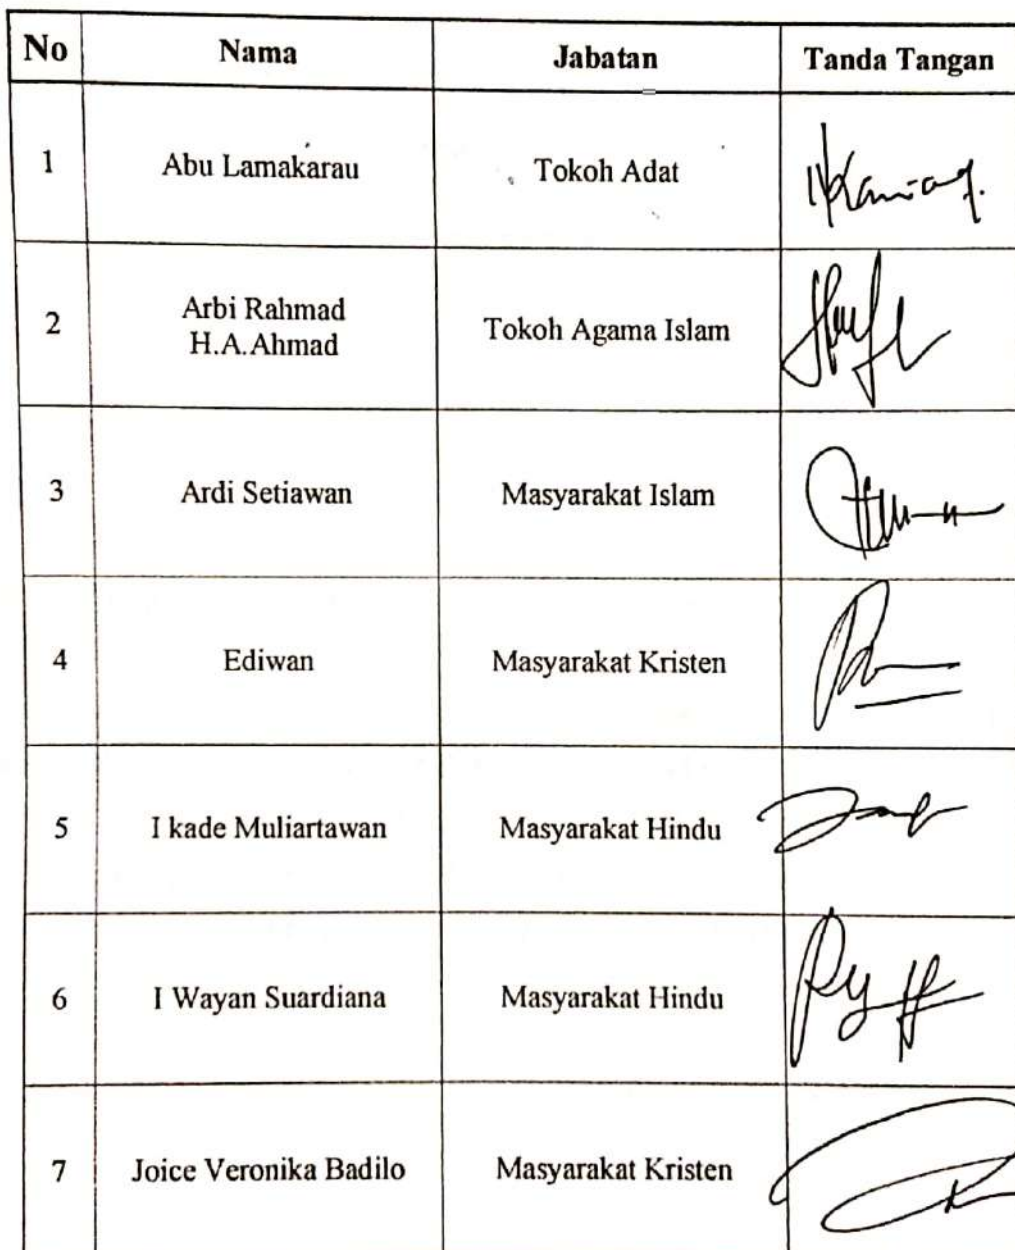 No Nama Jabatan Tanda Tangan
1 Abu Lamakarau Tokoh Adat
2 Arbi Rahmad H.A.Ahmad Tokoh Agama Islam
3 Ardi Setiawan Masyarakat Islam
4 Ediwan Masyarakat Kristen
5 I kade Muliartawan Masyarakat Hindu
6 I Wayan Suardiana Masyarakat Hindu
7 Joice Veronika Badilo Masyarakat Kristen